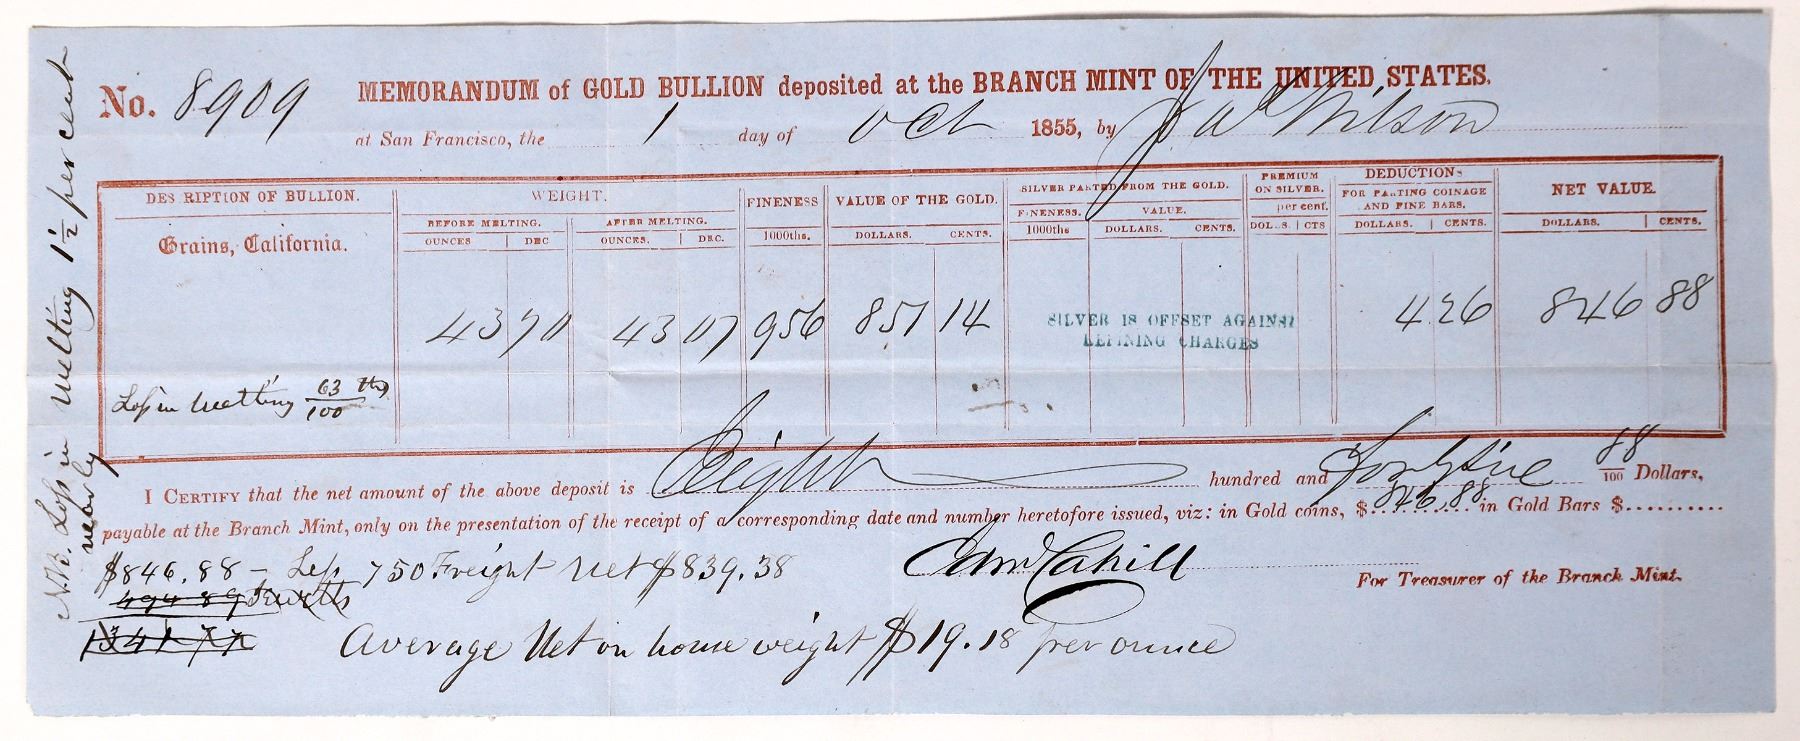 No. 8909 MEMORANDUM of GOLD BULLION deposited at the BRANCH MINT OF THE UNITED STATES.
at San Francisco, the 1 day of Oct 1855, by J. W. Wilson
DES RIPTION OF BULLION. WEIGHT. FINENESS VALUE OF THE GOLD. SILVER PARTED FROM THE GOLD. PREMIUM ON SILVER. DEDUCTIONS NET VALUE.
BEFORE MELTING. AFTER MELTING. FINENESS. VALUE. per cent. FOR PARTING COINAGE AND FINE BARS.
Grains, California. OUNCES DEC OUNCES. DEC. 1000ths. DOLLARS. CENTS. 1000ths DOLLARS. CENTS. DOL S CTS DOLLARS. CENTS. DOLLARS. CENTS.
43 70 43 07 956 851 14 4.26 846 88
SILVER IS OFFSET AGAINST
REFINING CHARGES
Loss in Melting 63/100 ths
I CERTIFY that the net amount of the above deposit is Eight hundred and Forty Six 88/100 Dollars,
payable at the Branch Mint, only on the presentation of the receipt of a corresponding date and number heretofore issued, viz: in Gold coins, $ 846.88 in Gold Bars $..........
$846.88 - Less 750 Freight Net $839.38
Edw Cahill
For Treasurer of the Branch Mint.
494 89
1341 77
Average Net on house weight $19.18 per ounce
N.B. Loss in Melting 1 1/2 per cent
nearly